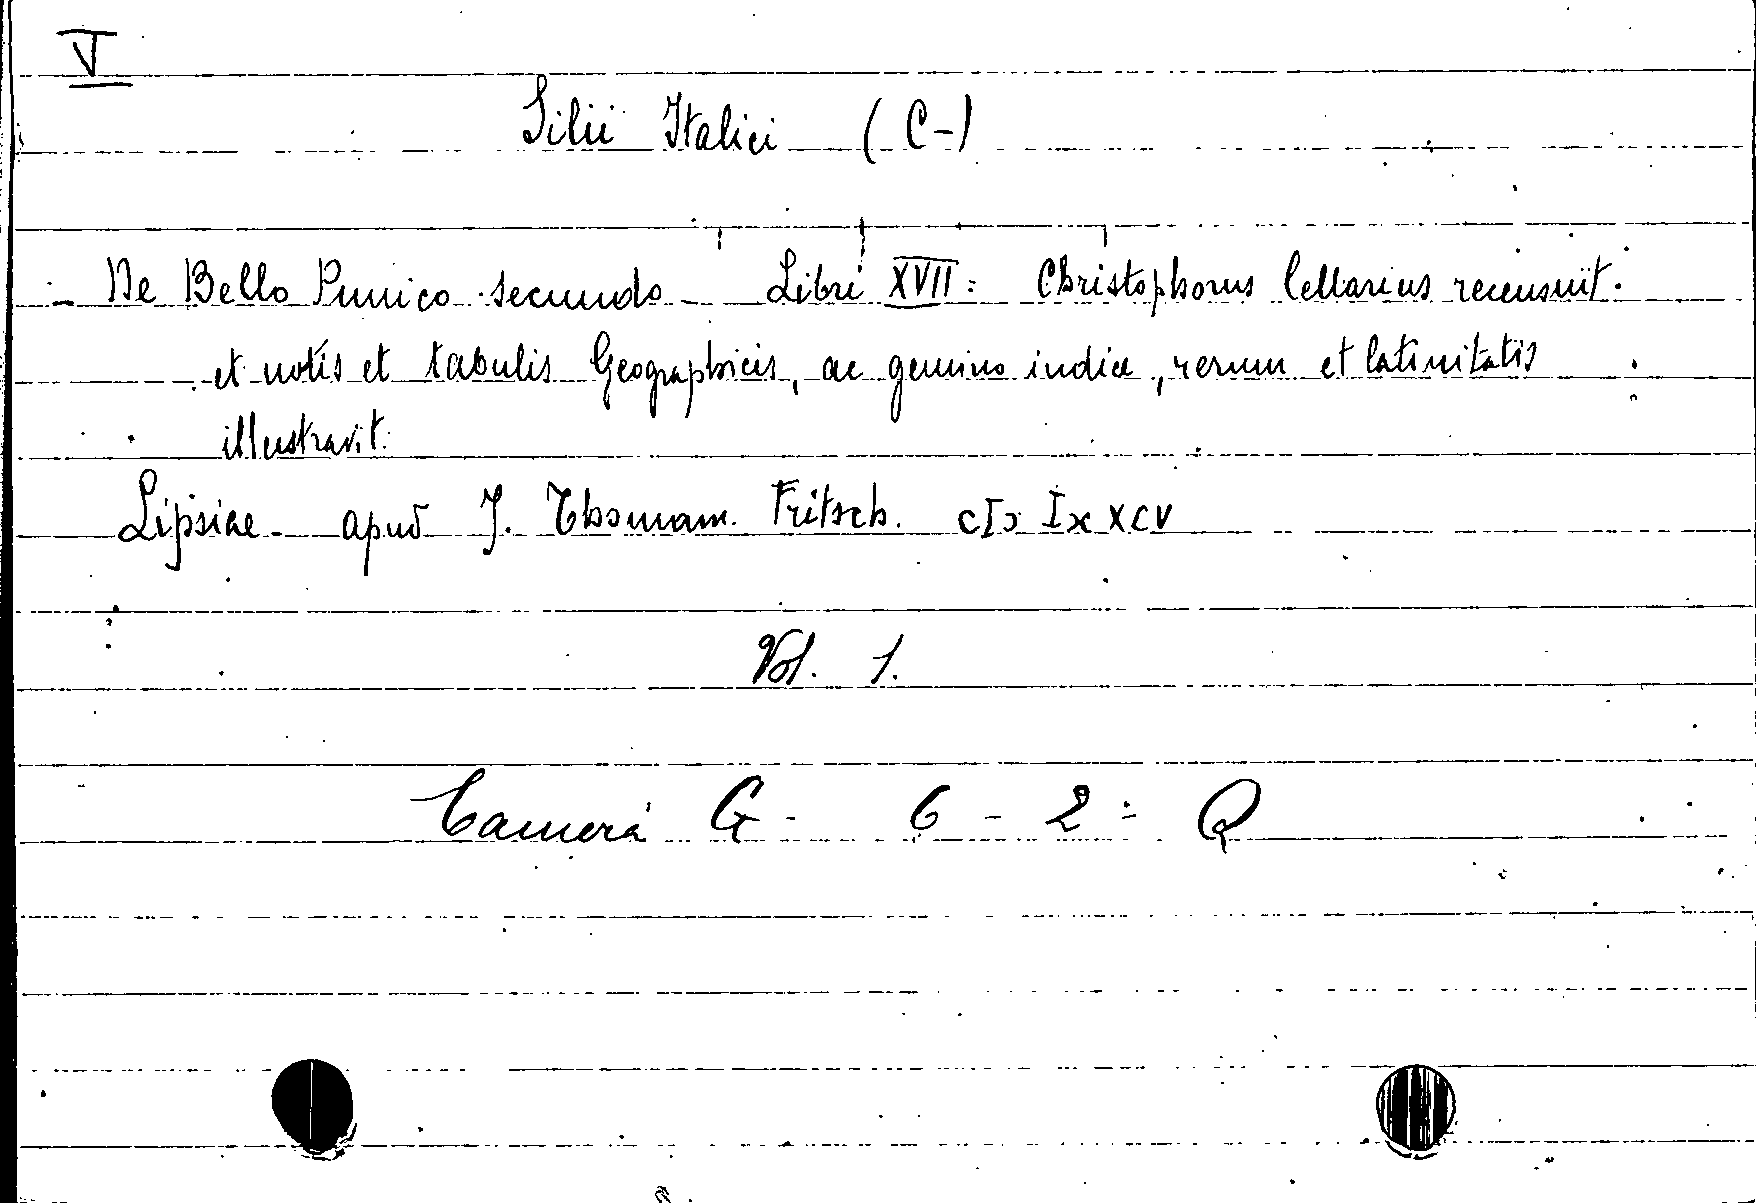 V
Silii Italici (C-)
De Bello Punico secundo Libri XVII: Christophorus Cellarius recensuit.
et notis et tabulis Geographicis, ac gemino indice, rerum et latinitatis
illustravit.
Lipsiae apud J. Thomam. Fritsch. cIɔ Iɔc XCV
Vol. 1.
Camera G - 6 - 2 = Q